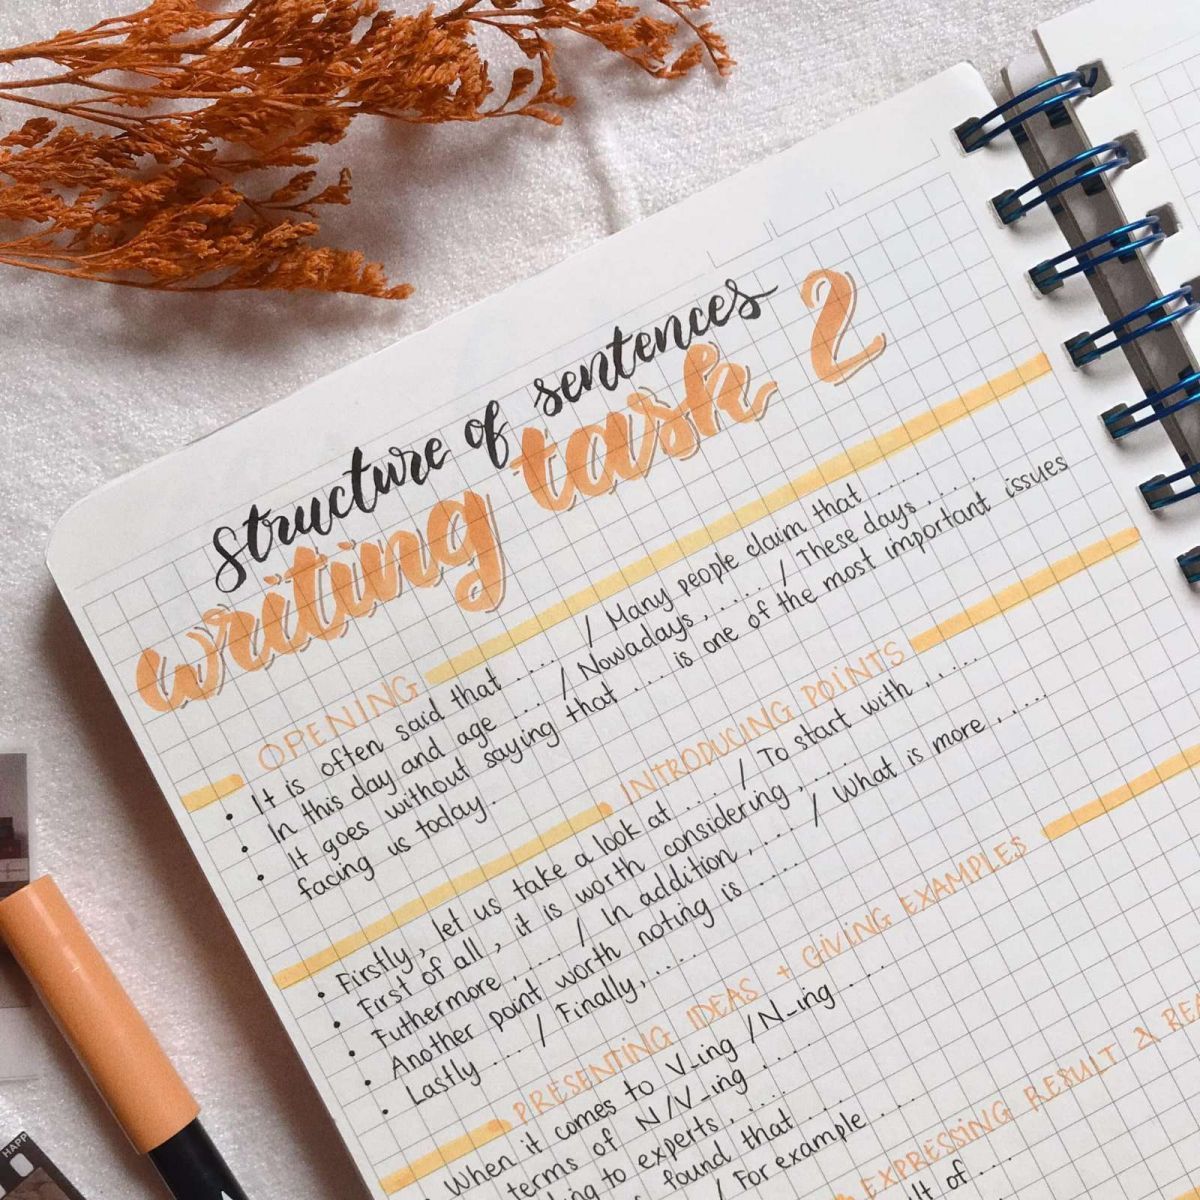 structure of sentences
writing task 2
OPENING
• It is often said that .... / Many people claim that ....
• In this day and age ... / Nowadays, .... / These days ....
• It goes without saying that .... is one of the most important issues
facing us today.
INTRODUCING POINTS
• Firstly, let us take a look at .... / To start with ....
• First of all, it is worth considering ....
• Futhermore, .... / In addition, .... / What is more, ....
• Another point worth noting is ....
• Lastly .... / Finally, ....
PRESENTING IDEAS + GIVING EXAMPLES
When it comes to V_ing / N_ing .
terms of N/V_ing ....
to experts, ....
found that ....
/ For example ....
EXPRESSING RESULT &
of ....
HAPP